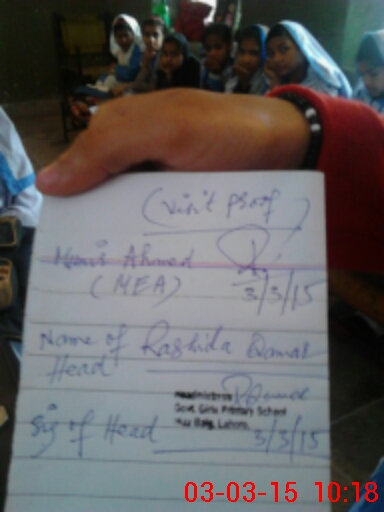 (visit proof)
Ahmed
(MEA) 3/3/15
Name of Rashida Qamar
Head
Headmistress
Govt. Girls Primary School
Baig, Lahore.
Sig of Head 3/3/15
03-03-15 10:18